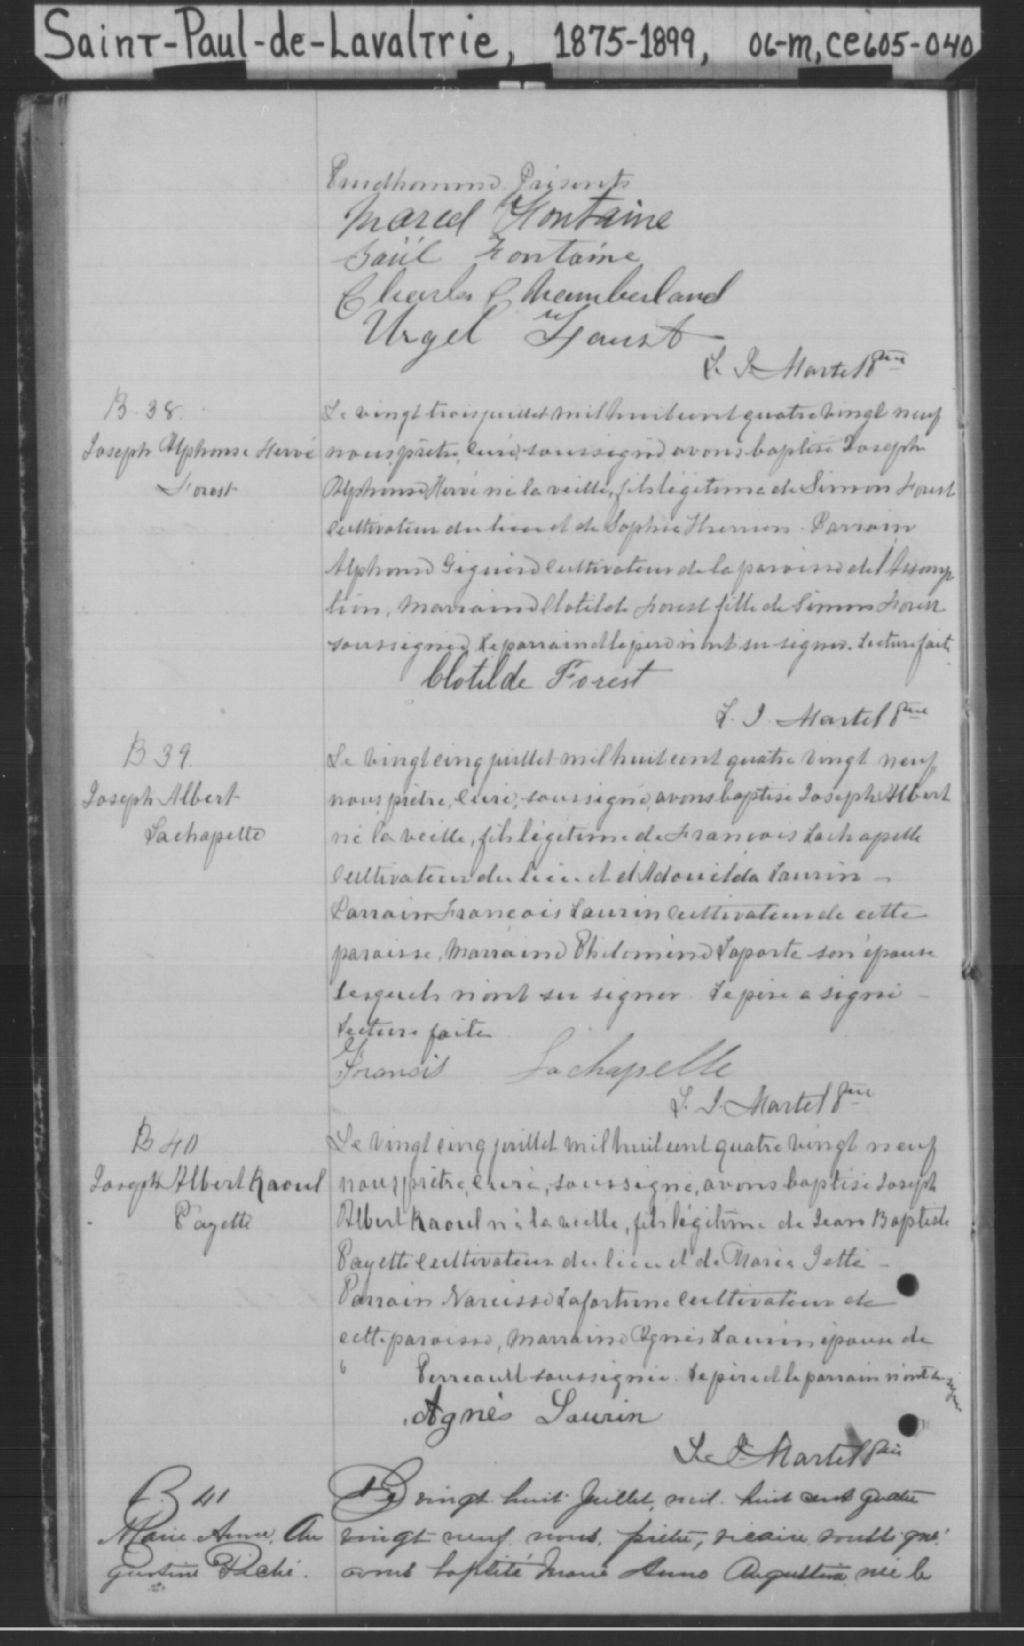 Saint-Paul-de-Lavaltrie, 1875-1899, 06-m, ce605-040
Prudhomme. Présents
Marcel Fontaine
Saül Fontaine
Charles Chamberland
Urgel Foucst
L. J. Martel Ptre
B 38.
Joseph Alphonse Hervé
Forest
Le vingt trois juillet mil huit cent quatre vingt neuf
nous, prêtre, curé, soussigné avons baptisé Joseph
Alphonse Hervé né la veille, fils légitime de Simon Forest
cultivateur du lieu et de Sophie . Parrain
Alphonse Giguère cultivateur de la paroisse de l'Assomp
tion, Marraine Clotilde Forest fille de Simon Forest
soussignée, le parrain et le père n'ont su signer. Lecture faite
Clotilde Forest
L. J. Martel Ptre
B 39
Joseph Albert
Lachapelle
Le vingt cinq juillet mil huit cent quatre vingt neuf
nous, prêtre, curé, soussigné, avons baptisé Joseph Albert
né la veille, fils légitime de François Lachapelle
cultivateur du lieu et d'Adouilda Laurin -
Parrain François Laurin cultivateur de cette
paroisse, Marraine Philomène Laporte son épouse
lesquels n'ont su signer. Le père a signé -
Lecture faite
Francis Lachapelle
L. J. Martel Ptre
B 40
Joseph Albert Raoul
Payette
Le vingt cinq juillet mil huit cent quatre vingt neuf
nous, prêtre, curé, soussigné, avons baptisé Joseph
Albert Raoul né la veille, fils légitime de Jean Baptiste
Payette cultivateur du lieu et de Marie Jetté -
Parrain Narcisse Lafortune cultivateur de
cette paroisse, Marraine Agnès Laurin épouse de
Perreault soussignée. Le père et le parrain n'ont su signer
Agnès Laurin
L. J. Martel Ptre
B 41
Marie Anne Au
gustine Piché.
Le vingt huit Juillet, mil huit cent quatre
vingt neuf nous, prêtre, vicaire soussigné
avons baptisé Marie Anne Augustine née le